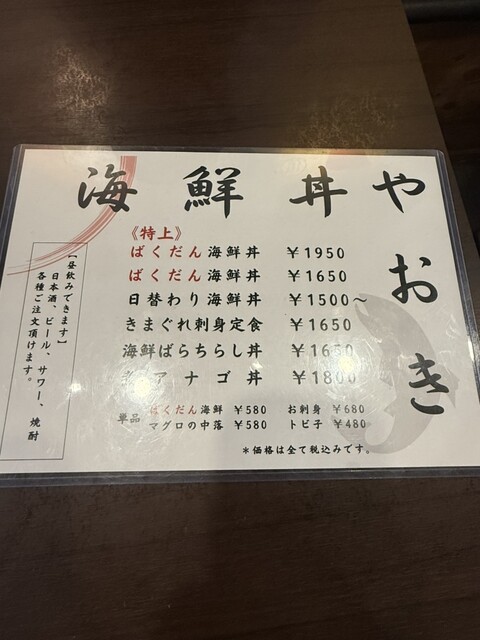 海鮮丼やおき
《特上》
ばくだん海鮮丼 ￥1950
ばくだん海鮮丼 ￥1650
日替わり海鮮丼 ￥1500～
きまぐれ刺身定食 ￥1650
海鮮ばらちらし丼 ￥1650
アナゴ丼 ￥1800
単品
ばくだん海鮮 ￥580 お刺身 ￥680
マグロの中落 ￥580 トビ子 ￥480
＊価格は全て税込みです。
【昼飲みできます】
日本酒、ビール、サワー、焼酎
各種ご注文頂けます。